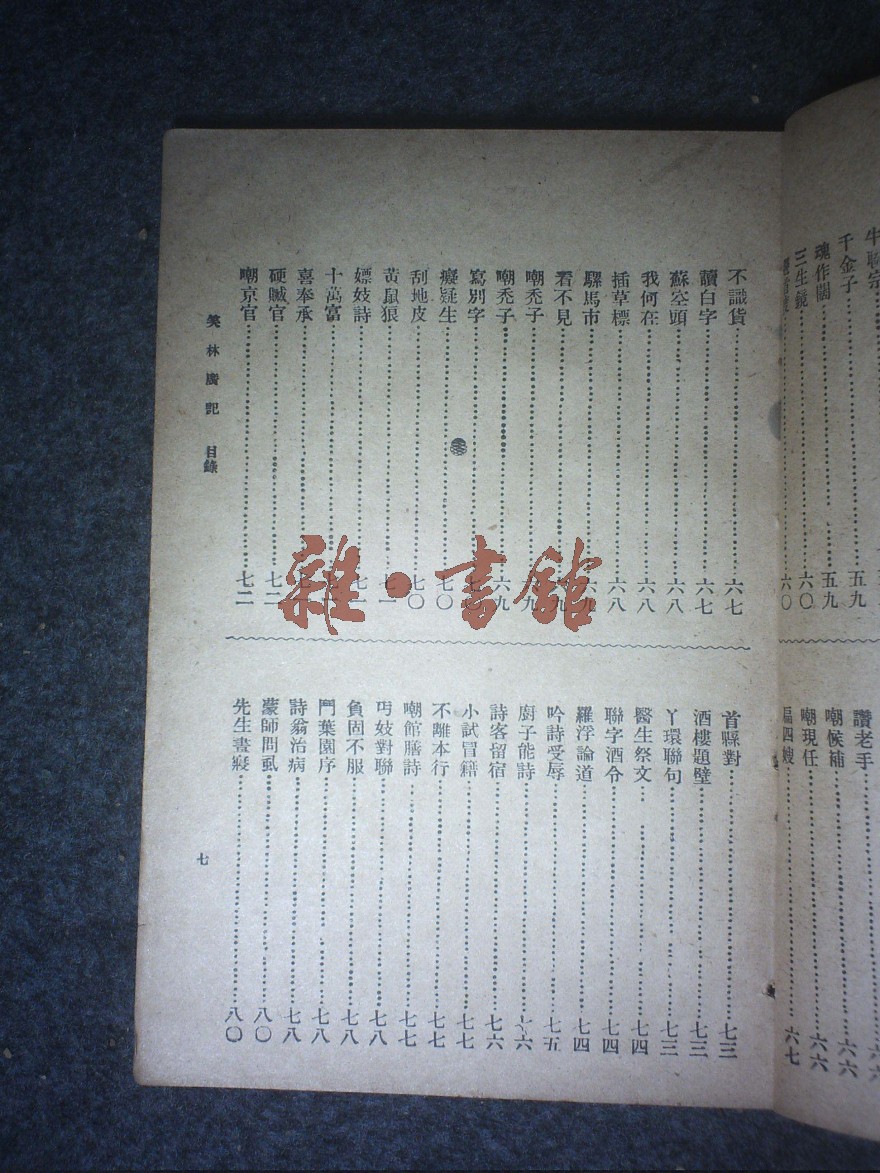 千金子 五九
魂作闊 五九
三生鏡 六〇
六〇
讚老手
嘲候補 六六
嘲現任 六六
四嫂 六七
不識貨 六七
讀白字 六七
蘇空頭 六八
我何在 六八
插草標 六八
騾馬市 六九
看不見 九
嘲禿子 九
嘲禿子 六九
寫別字 七
癡疑生 七〇
刮地皮 七〇
黃鼠狼 七一
嫖妓詩 七一
十萬富 七
喜奉承 七
硬贓官 七二
嘲京官 七二
首縣對 七三
酒樓題壁 七三
丫環聯句 七三
醫生祭文 七四
聯字酒令 七四
羅浮論道 七四
吟詩受辱 七五
廚子能詩 七六
詩客留宿 七六
小試冒籍 七七
不離本行 七七
嘲館膳詩 七七
丐妓對聯 七八
負固不服 七八
鬥葉園序 七八
詩翁治病 七八
蒙師問虱 八〇
先生晝寢 八〇
笑林廣記 目錄
七
雜·書館